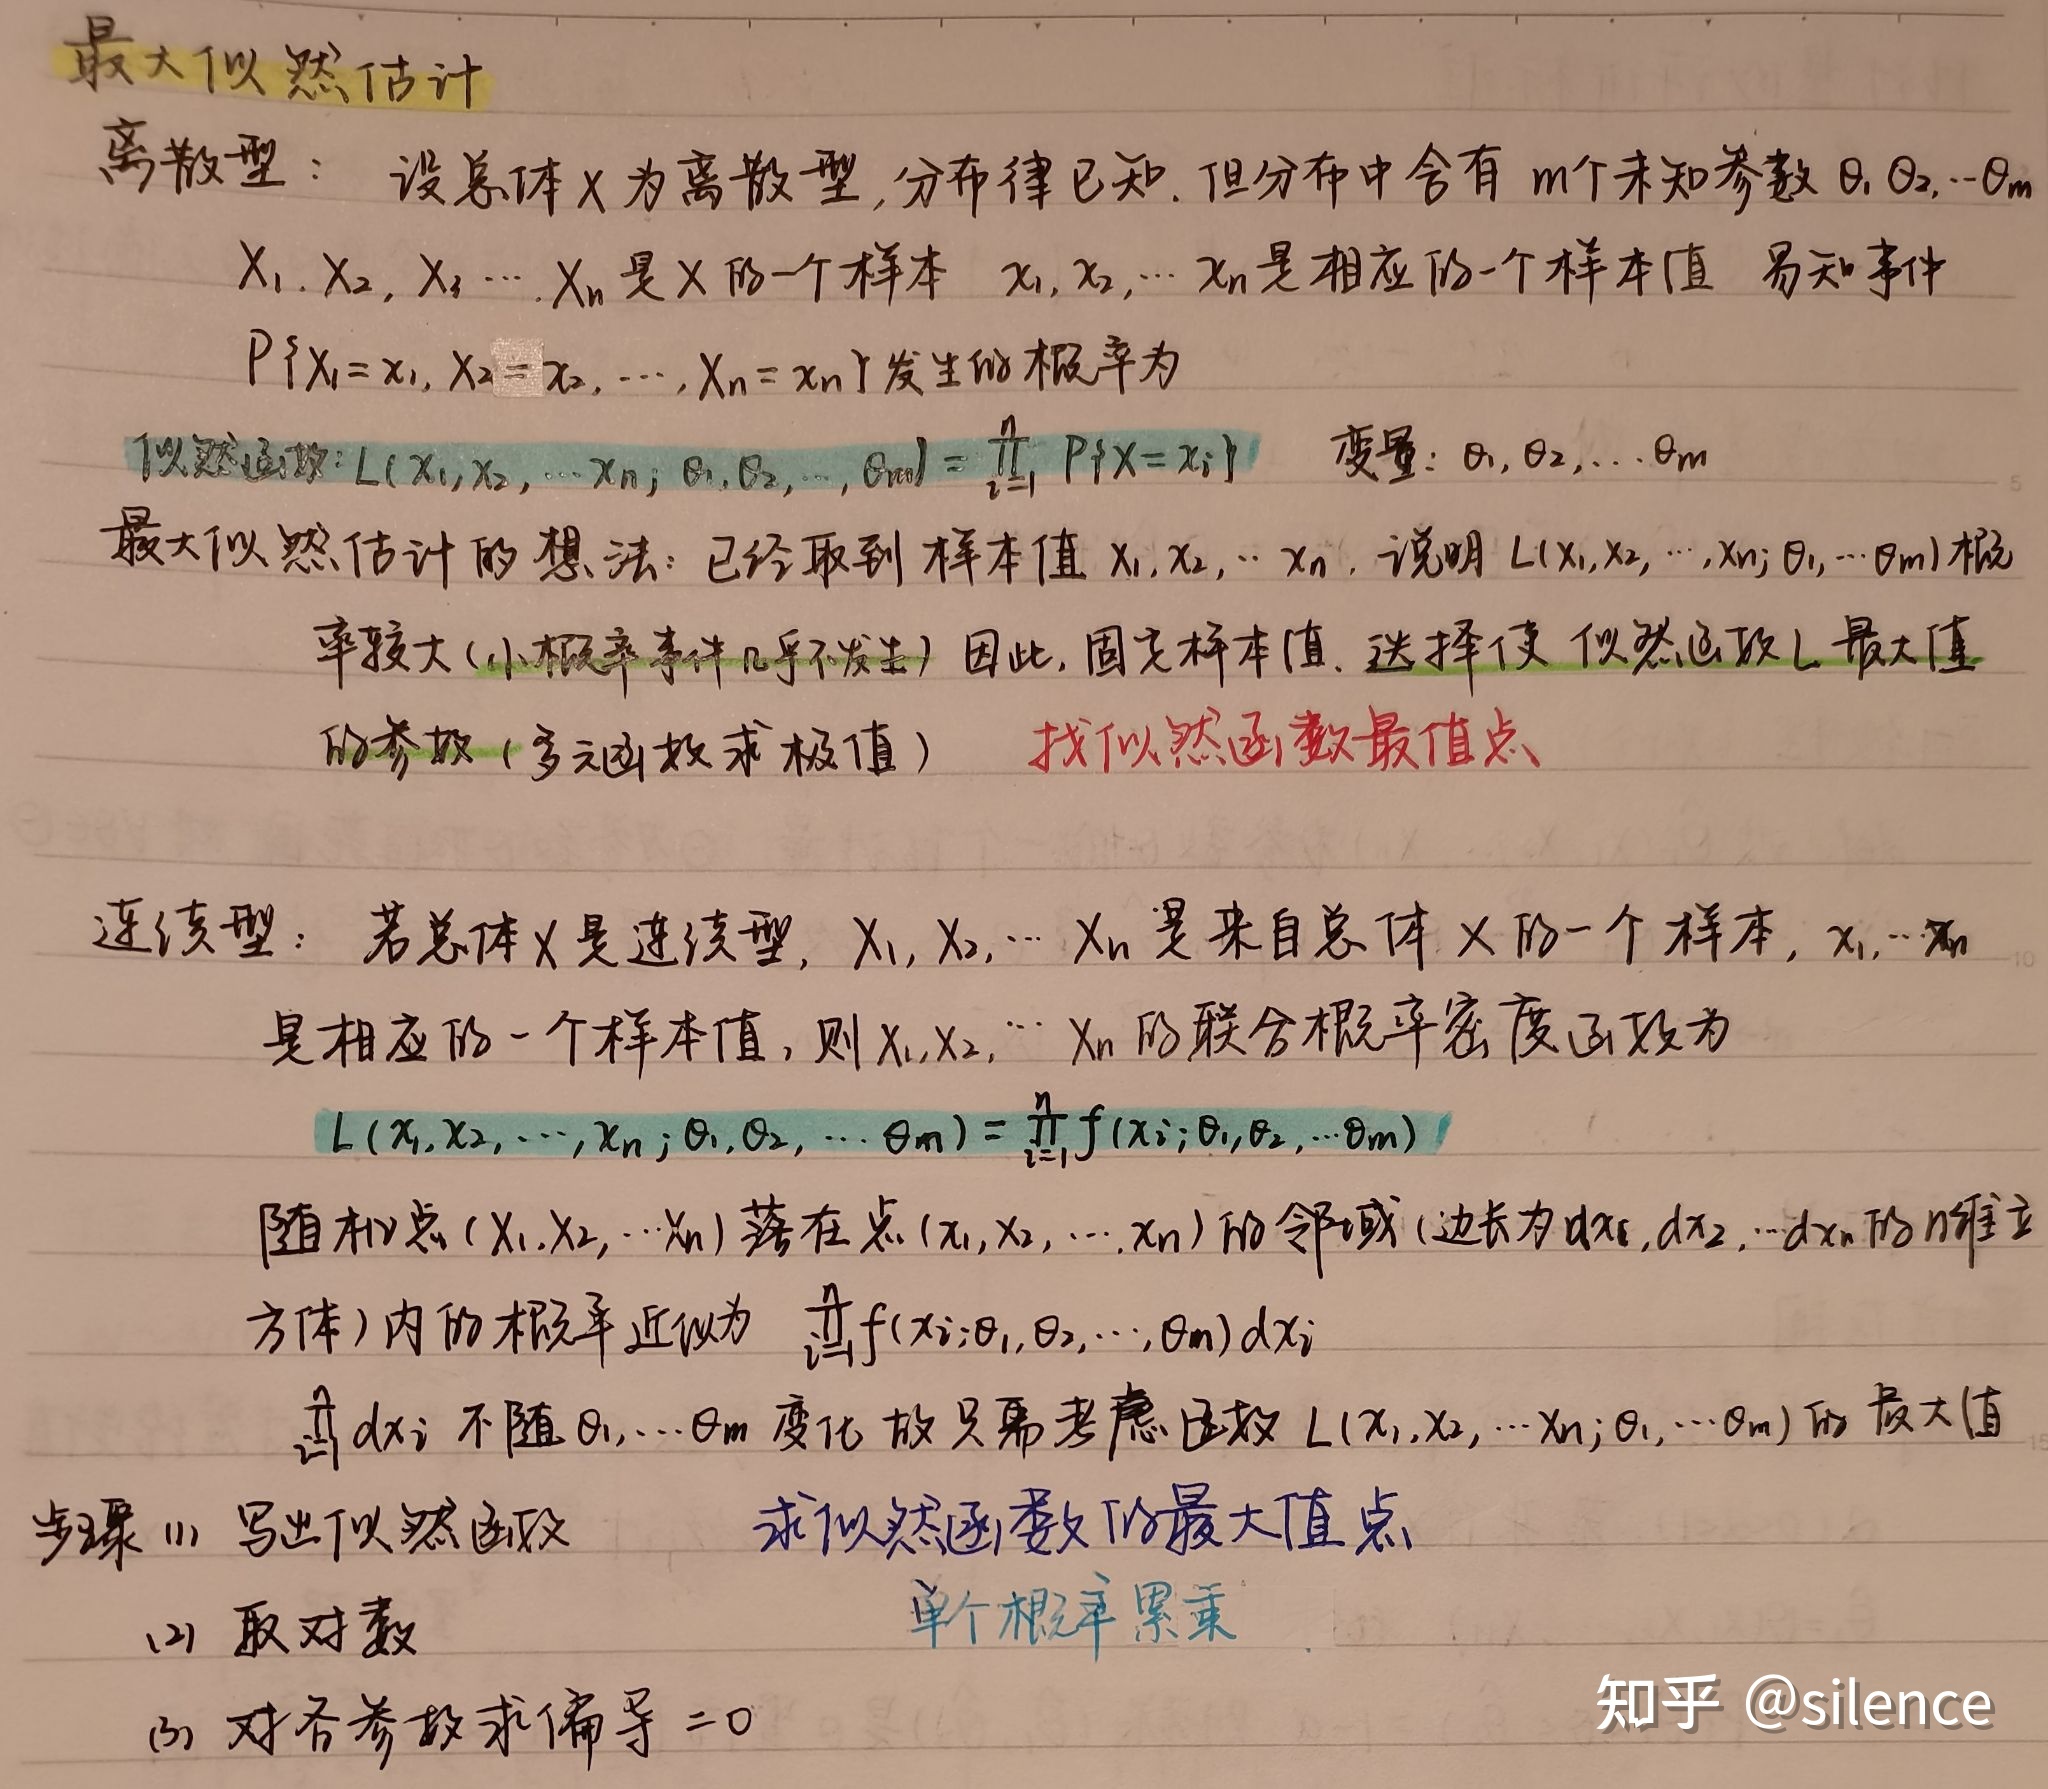 最大似然估计
离散型： 设总体X为离散型,分布律已知.但分布中含有 m个未知参数 θ₁ θ₂,…θm
X₁. X₂, X₃ …. Xn 是 X 的一个样本 x₁, x₂,… xn 是相应的一个样本值 易知事件
P{X₁=x₁, X₂=x₂, …, Xn=xn}发生的概率为
似然函数: L(x₁,x₂,…xn; θ₁,θ₂,…,θm) = ∏ᵢ₌₁ⁿ P{X=xᵢ} 变量: θ₁,θ₂,…θm
最大似然估计的想法: 已经取到样本值 x₁,x₂,…xn. 说明 L(x₁,x₂,…,xn;θ₁,…θm)概
率较大(小概率事件几乎不发生)因此,固定样本值.选择使似然函数L最大值
的参数(多元函数求极值) 找似然函数最值点
连续型: 若总体X是连续型, X₁, X₂,… Xn 是来自总体 X 的一个样本, x₁,…xn
是相应的一个样本值,则X₁,X₂,…Xn的联合概率密度函数为
L(x₁,x₂,…,xn;θ₁,θ₂,…θm) = ∏ᵢ₌₁ⁿ f(xᵢ;θ₁,θ₂,…θm)
随机点(X₁.X₂,…Xn)落在点(x₁,x₂,…,xn)的邻域(边长为dx₁,dx₂,…dxn的n维立
方体)内的概率近似为 ∏ᵢ₌₁ⁿ f(xᵢ;θ₁,θ₂,…,θm)dxᵢ
∏ᵢ₌₁ⁿ dxᵢ 不随θ₁,…θm 变化 故只需考虑函数 L(x₁,x₂,…xn;θ₁,…θm)的最大值
步骤 (1) 写出似然函数 求似然函数的最大值点
(2) 取对数 单个概率累乘
(3) 对各参数求偏导=0
知乎 @silence